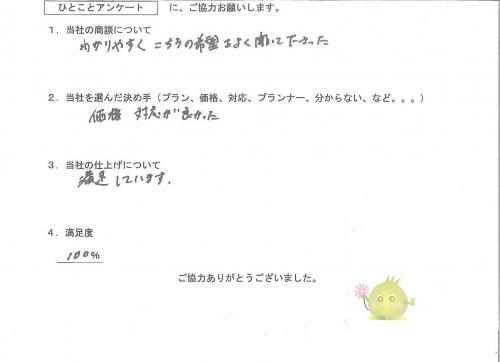 ひとことアンケート に、ご協力お願いします。
1．当社の商談について
わかりやすく こちらの希望をよく聞いて下さった
2．当社を選んだ決め手（プラン、価格、対応、プランナー、分からない、など。。。）
価格 対応が良かった
3．当社の仕上げについて
満足しています．
4．満足度
100%
ご協力ありがとうございました。